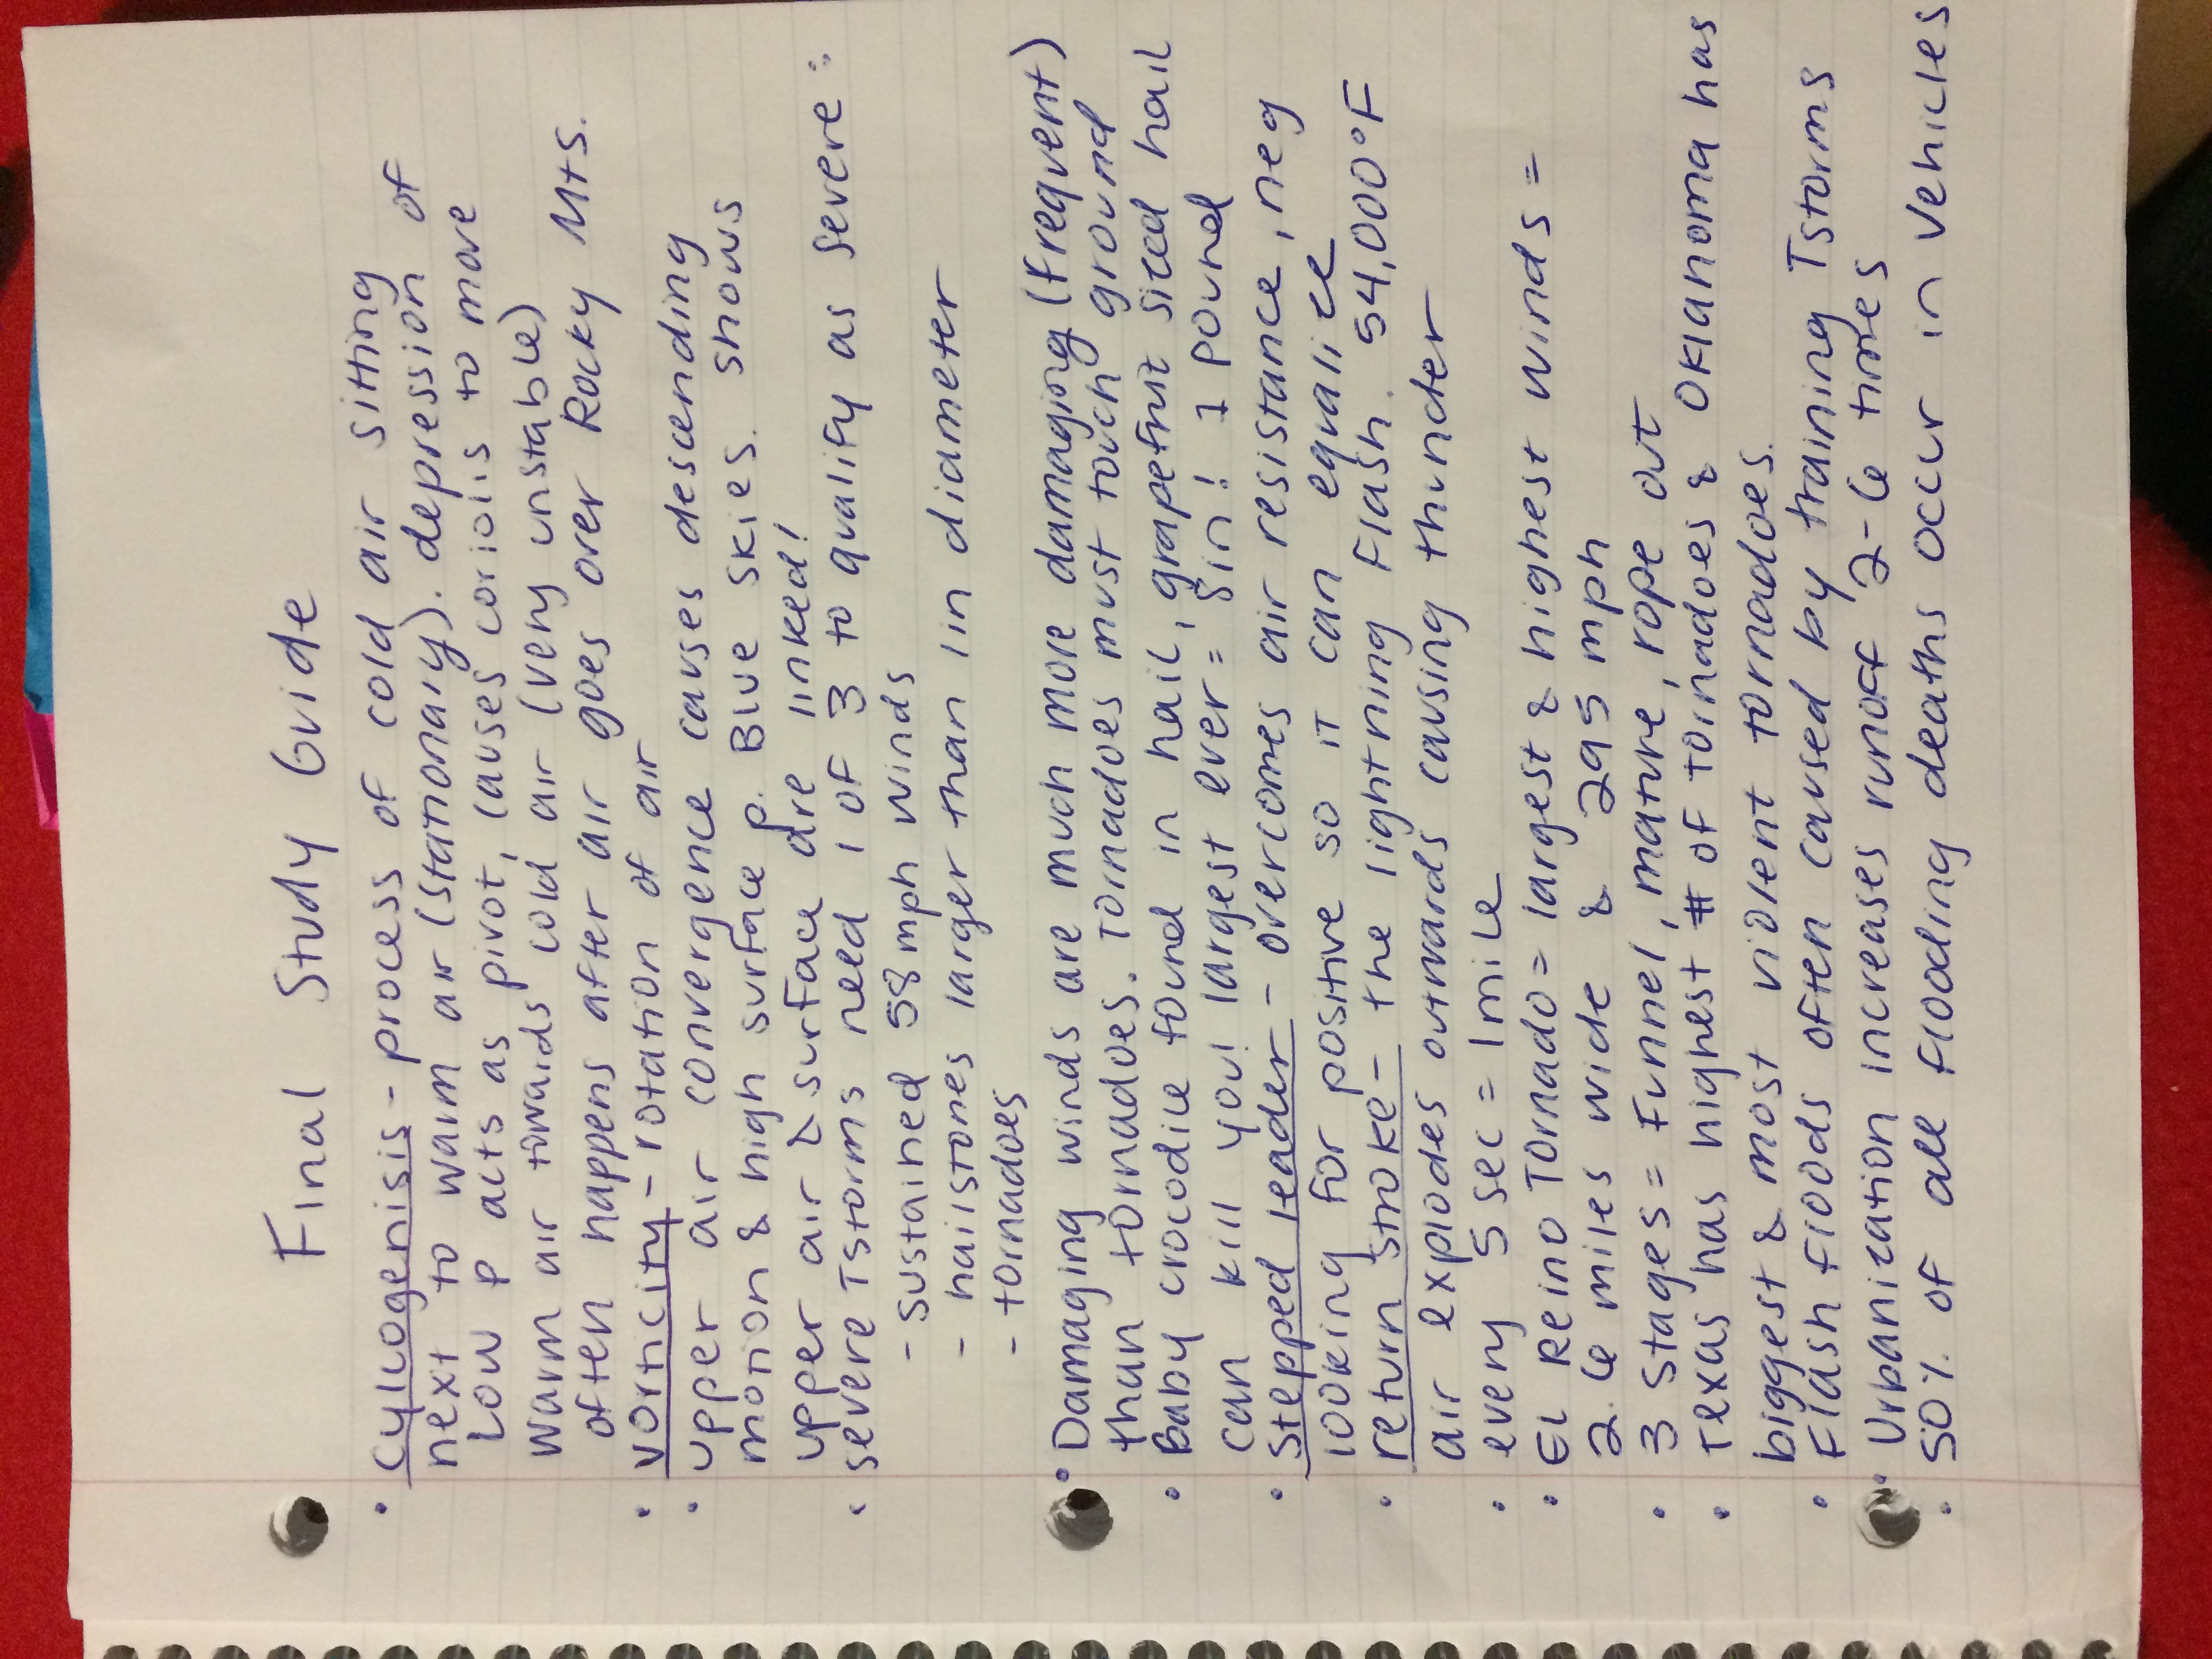 Final Study Guide
• cylcogenisis - process of cold air sitting
next to warm air (stationary). depression of
Low P acts as pivot, causes coriolis to move
warm air towards cold air (very unstable)
often happens after air goes over Rocky Mts.
• vorticity - rotation of air
• upper air convergence causes descending
motion & high surface P. Blue skies. shows
upper air & surface are linked!
• severe Tstorms need 1 of 3 to qualify as severe:
- sustained 58 mph winds
- hailstones larger than 1in diameter
- tornadoes
• Damaging winds are much more damaging (frequent)
than tornadoes. Tornadoes must touch ground
• Baby crocodile found in hail, grapefruit sized hail
can kill you! largest ever = 8in! 1 pound
• stepped leader - overcomes air resistance, neg
looking for positive so it can equalize
• return stroke - the lightning flash. 54,000°F
air explodes outwards causing thunder
• every 5 sec = 1 mile
• EL Reino Tornado = largest & highest winds =
2.6 miles wide & 295 mph
• 3 stages = Funnel, mature, rope out
• Texas has highest # of tornadoes & Oklahoma has
biggest & most violent tornadoes.
• Flash floods often caused by training Tstorms
• Urbanization increases runoff 2-6 times
• 50% of all flooding deaths occur in vehicles